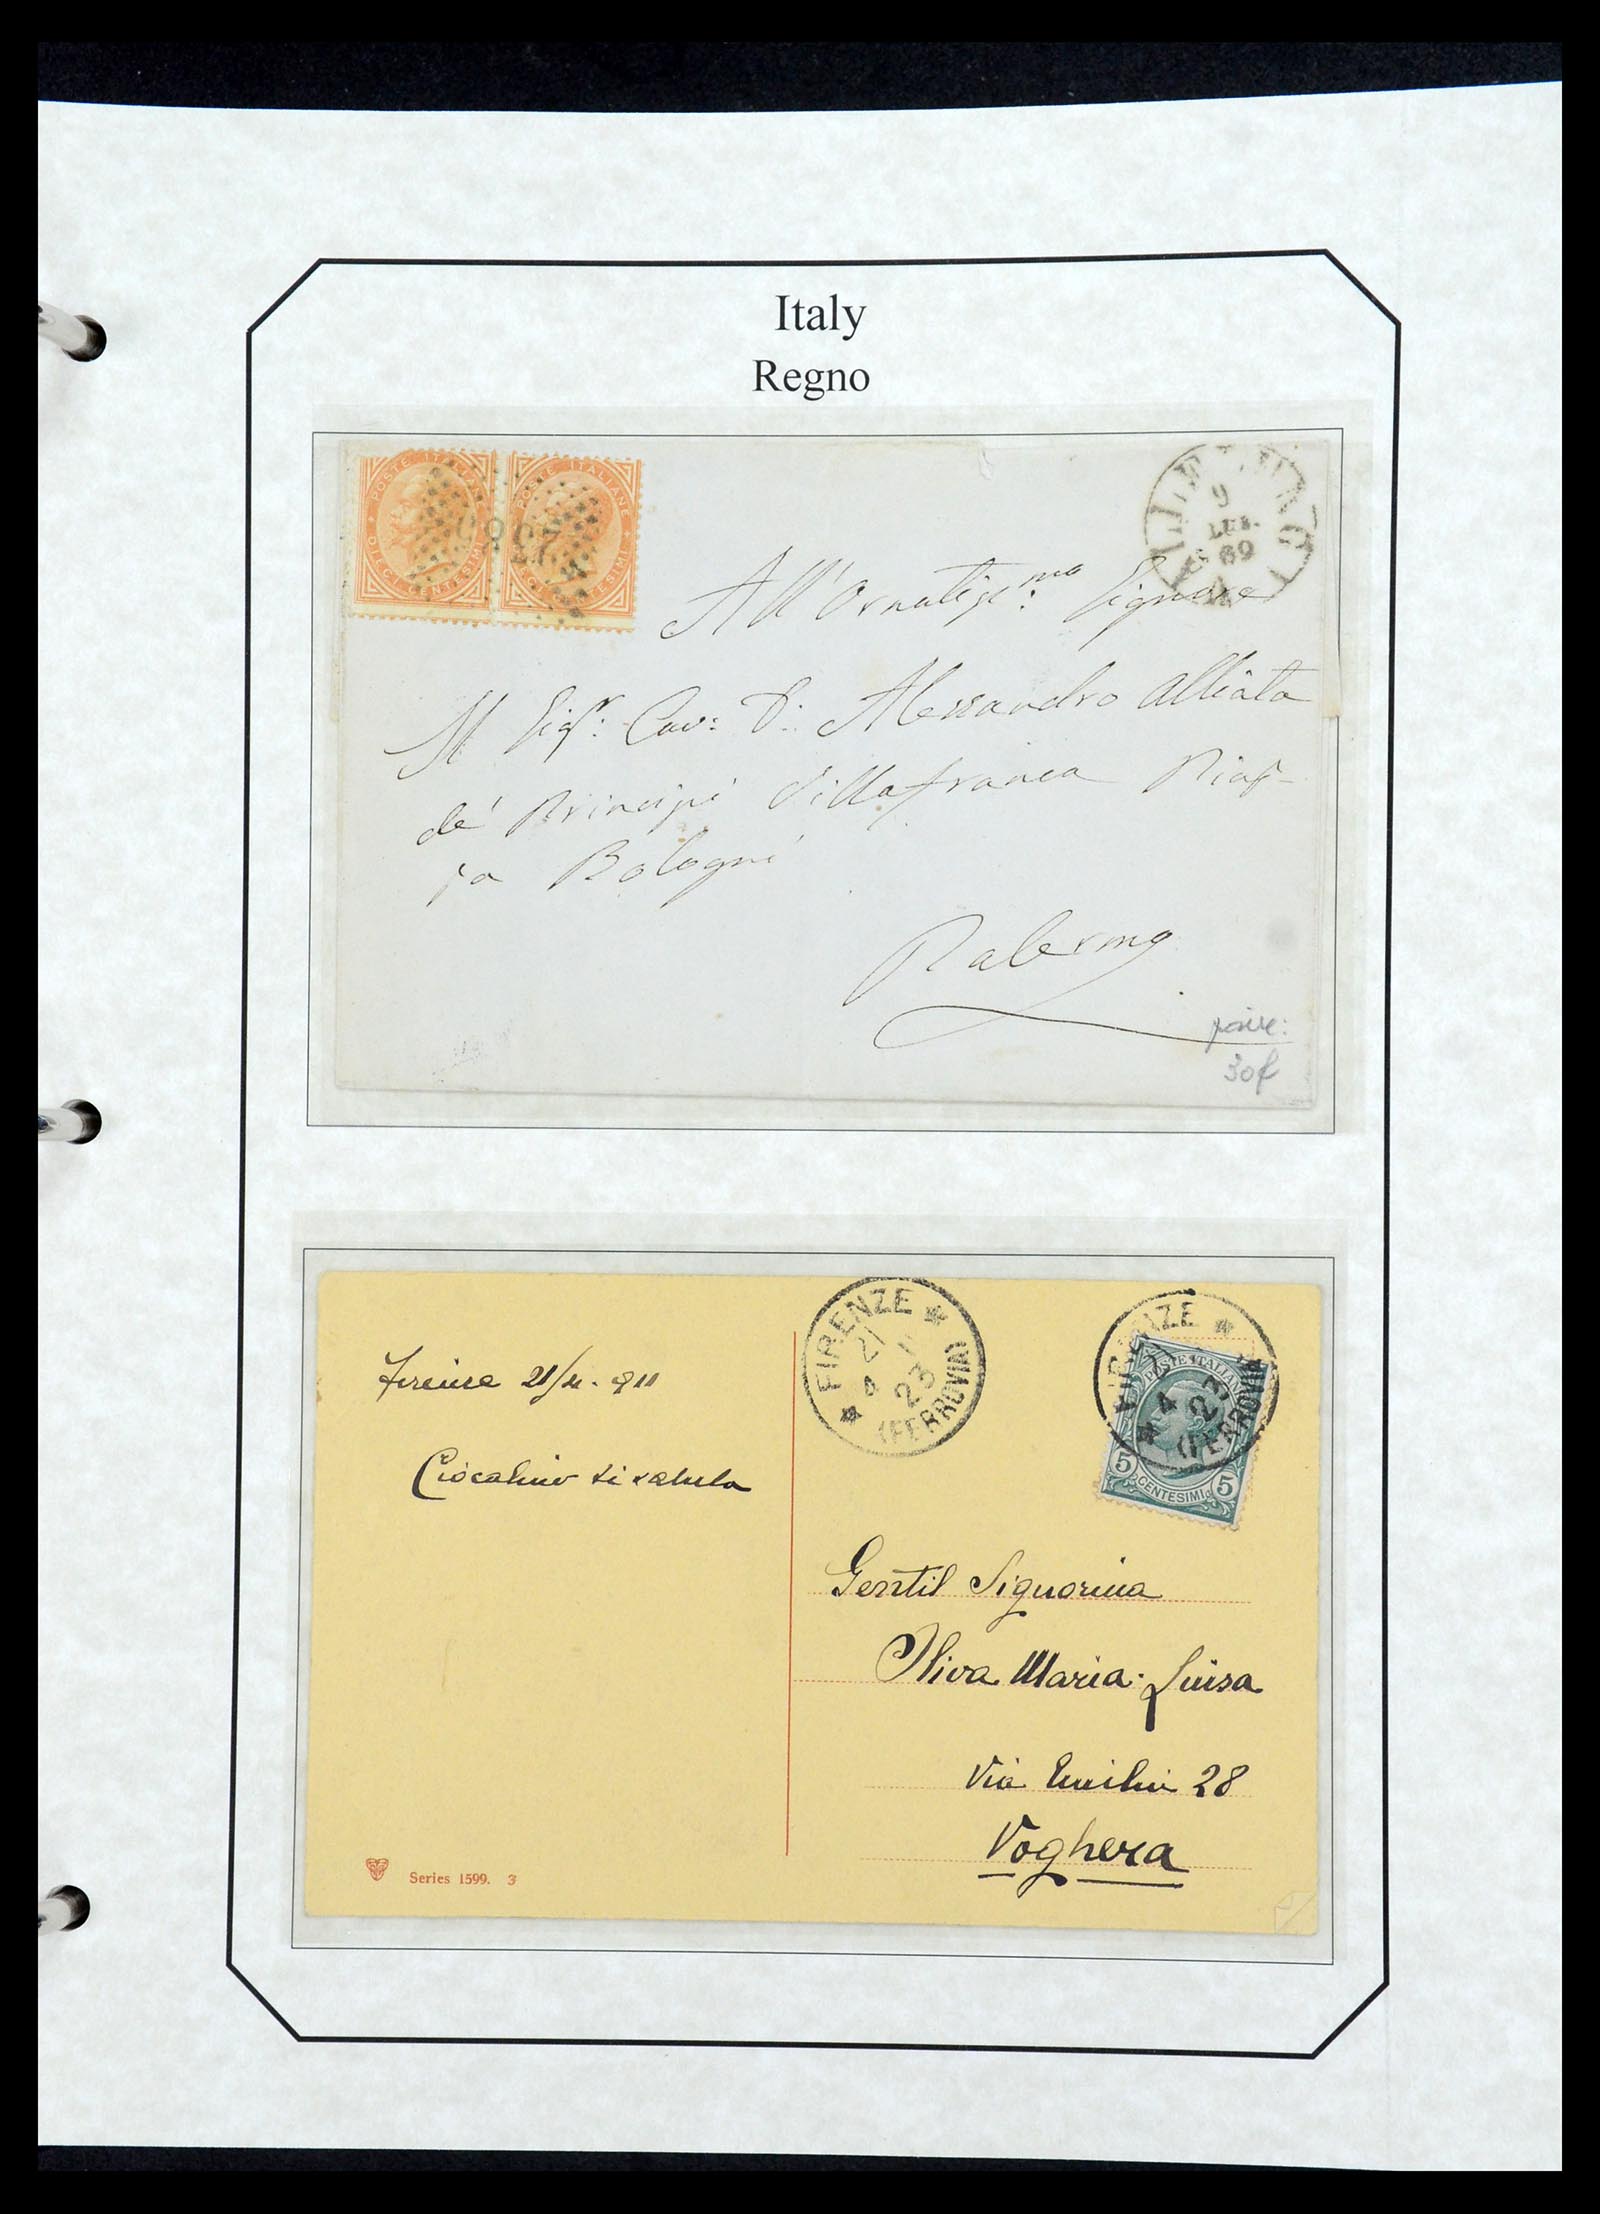 Italy
Regno
POSTE ITALIANE
DIECI CENTESIMI
POSTE ITALIANE
DIECI CENTESIMI
9
LUG.
69
All' Ornatis.mo Signore
Il Sigr. Cav: D: Alessandro Alliata
de' Principi Villafranca Piaz-
za Bologni
Palermo
30f
FIRENZE
21 4 11
23
(FERROVIA)
FIRENZE
4
23
(FERROVIA)
POSTE ITALIANE
5 CENTESIMI 5
Firenze 21/4. 911
saluta
Gentil Signorina
Oliva Maria Luisa
Via Emilia 28
Voghera
Series 1599. 3